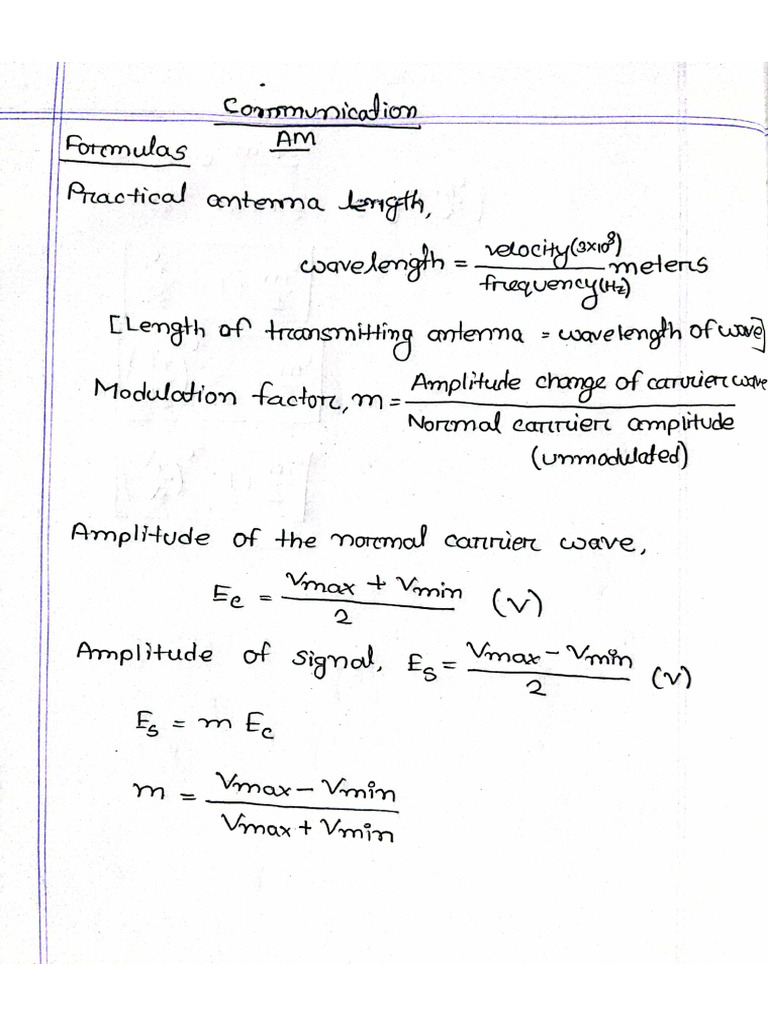 Communication
AM
Formulas
Practical antenna length,
wavelength = velocity(3×10⁸) / frequency(Hz) meters
[Length of transmitting antenna = wavelength of wave]
Modulation factor, m = Amplitude change of carrier wave / Normal carrier amplitude
(unmodulated)
Amplitude of the normal carrier wave,
Ec = Vmax + Vmin / 2 (V)
Amplitude of signal, Es = Vmax - Vmin / 2 (V)
Es = m Ec
m = Vmax - Vmin / Vmax + Vmin